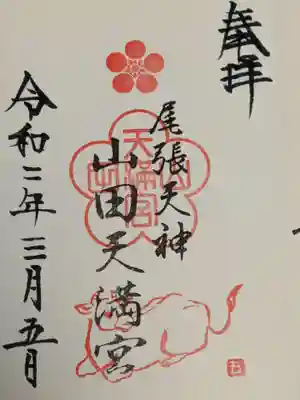 奉拝
尾張天神
山田天満宮
令和二年三月五日